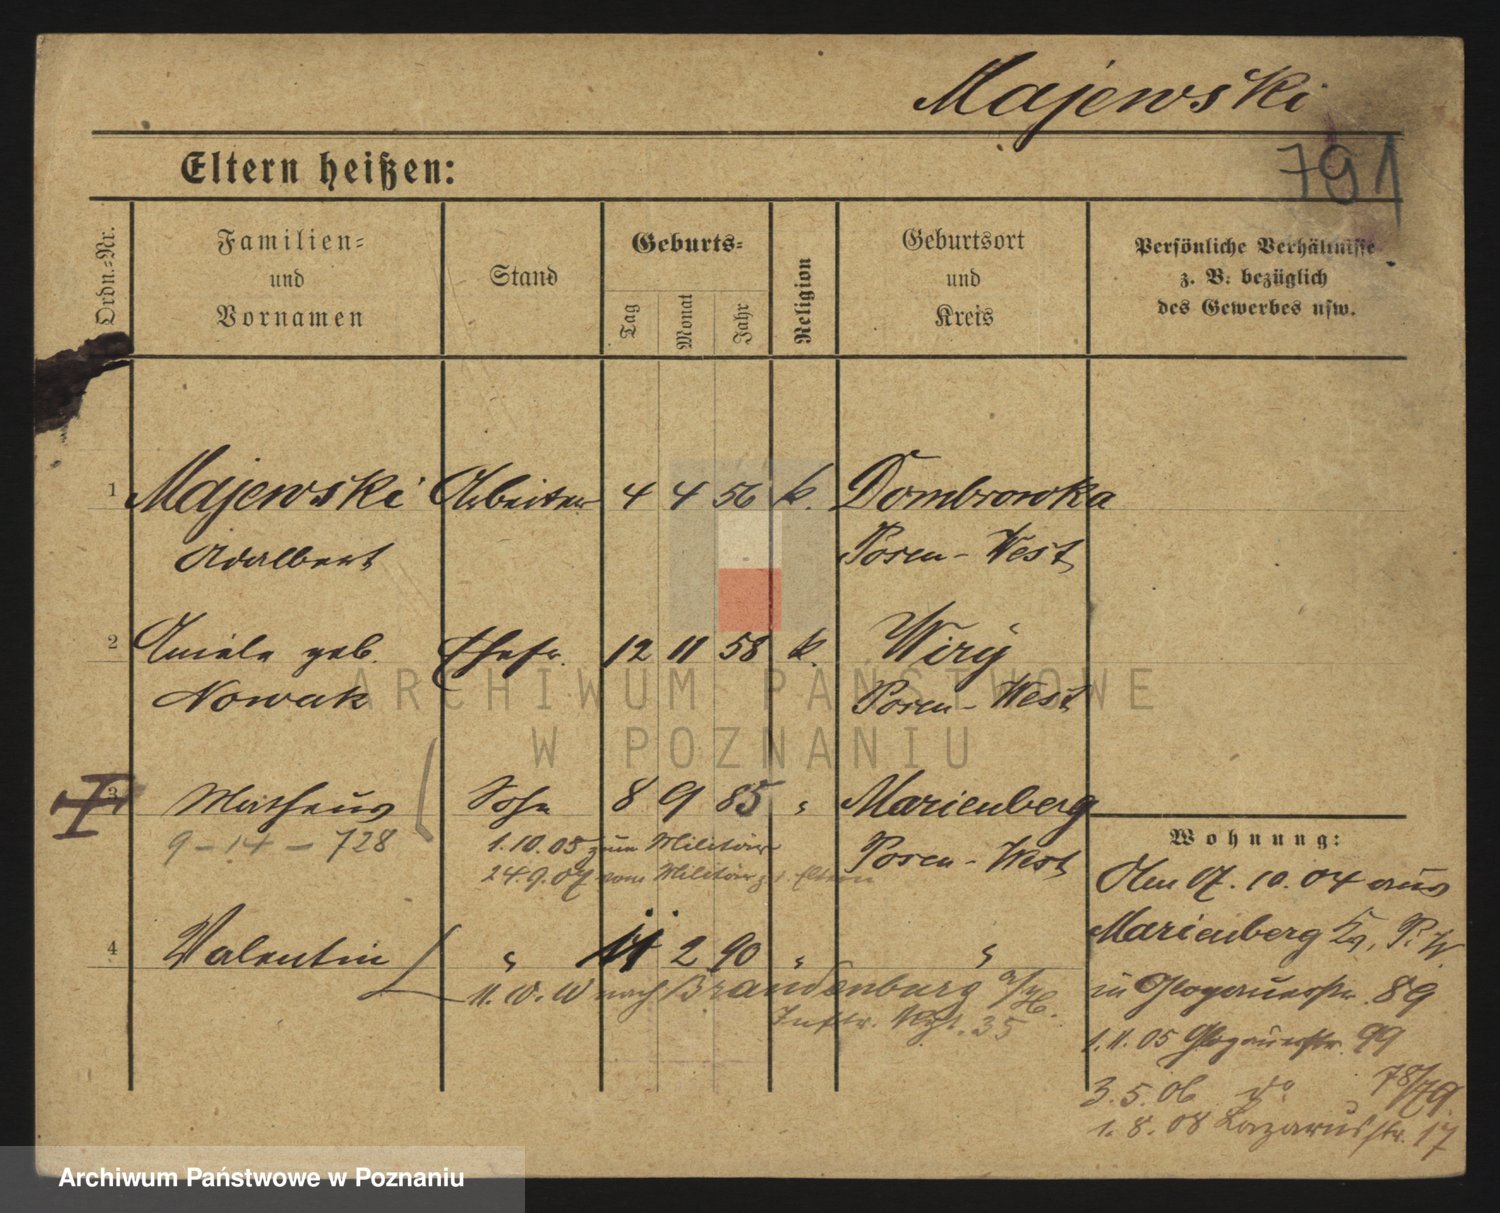 Majewski
791
Eltern heißen:
Ordn.-Nr.
Familien-
und
Vornamen
Stand
Geburts-
Tag
Monat
Jahr
Religion
Geburtsort
und
Kreis
Persönliche Verhältnisse
z. B. bezüglich
des Gewerbes usw.
1 Majewski Arbeiter 4 4 56 k. Dombrowka
Adalbert Posen-West
2 Aniela geb. Ehefr. 12 11 58 k. Wiry
Nowak Posen-West
3 Matheus Sohn 8 9 85 " Marienberg
9-14-728 1.10.05 zum Militär Posen-West
24.9.07 vom Militär z. d. Eltern
4 Valentin " 11 2 90 " "
nach Brandenburg a/H.
Inftr. Regt. 35
Wohnung:
Am 07.10.04 aus
Marienberg Kr. P. W.
in Glogauerstr. 89
1.11.05 Glogauerstr. 99
3.5.06 do 78/79
1.8.08 Lazarusstr. 17
ARCHIWUM PAŃSTWOWE
W POZNANIU
Archiwum Państwowe w Poznaniu